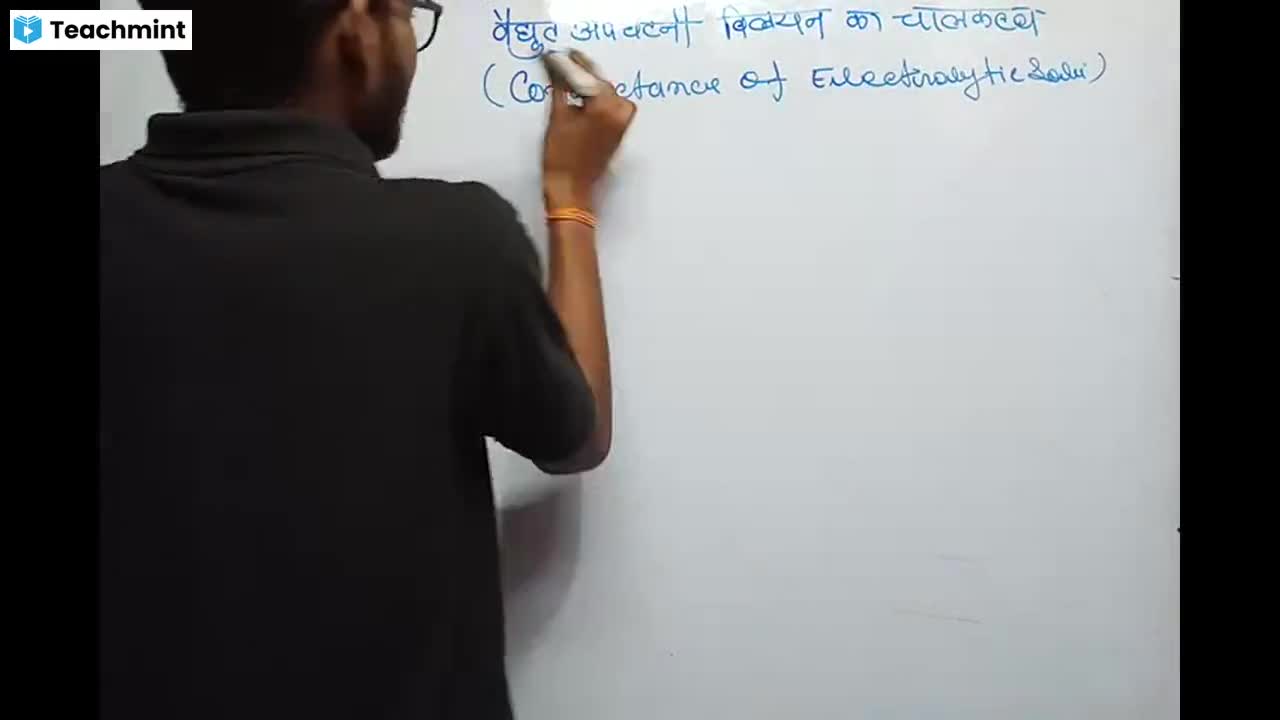 Teachmint
वैद्युत अपघटनी विलयन का चालकत्व
( Conductance of Electrolytic Solu )